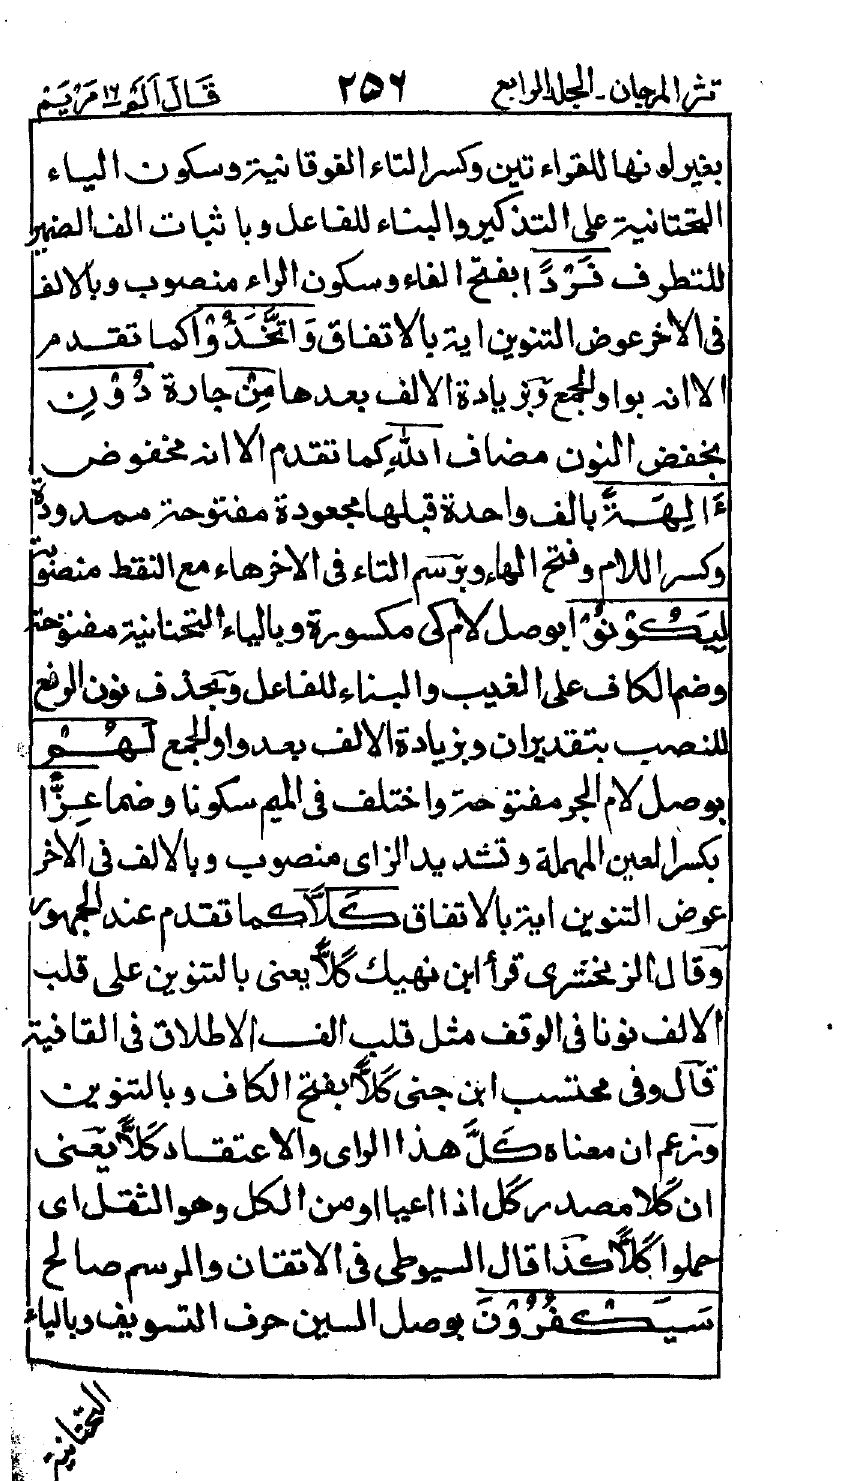 نثر المرجان - الجلد الرابع ۲۵۶ قَالَ اَلَمْ ۱۶ مَرْيَمْ
بغير لونها للقراء تين وكسر التاء الفوقانية وسكون الياء
التحتانية على التذكير والبناء للفاعل وباثبات الف الضمير
للتطرف فَرْدًا بفتح الفاء وسكون الراء منصوب وبالالف
فى الآخر عوض التنوين اية بالاتفاق وَاتَّخَذُوْا كما تقدم
الا انه بواو الجمع وبزيادة الالف بعدها مِنْ جارة دُوْنِ
بخفض النون مضاف اللهِ كما تقدم الا انه مخفوض
ءَالِهَةً بالف واحدة قبلها مجعودة مفتوحة ممدودة
وكسر اللام وفتح الهاء وبرسم التاء فى الآخر هاء مع النقط منصوبة
لِيَكُوْنُوْا بوصل لام كى مكسورة وبالياء التحتانية مفتوحة
وضم الكاف على الغيب والبناء للفاعل وبحذف نون الرفع
للنصب بتقدير ان وبزيادة الالف بعد واو الجمع لَهُمْ
بوصل لام الجر مفتوحة واختلف فى الميم سكونا وضما عِزًّا
بكسر العين المهملة وتشديد الزاى منصوب وبالالف فى الآخر
عوض التنوين اية بالاتفاق كَلَّا كما تقدم عند الجمهور
وقال الزمخشرى قرأ ابن نهيك كَلًّا يعنى بالتنوين على قلب
الالف نونا فى الوقف مثل قلب الف الاطلاق فى القافية
قال وفى محتسب ابن جنى كَلًّا بفتح الكاف وبالتنوين
وزعم ان معناه كَلَّ هذا الراى والاعتقاد كَلًّا يعنى
ان كَلّا مصدر كَلَّ اذا اعيا او من الكل وهو الثقل اى
حملوا كَلًّا كذا قال السيوطى فى الاتقان والرسم صالح
سَيَكْفُرُوْنَ بوصل السين حرف التسويف وبالياء
التحتانية